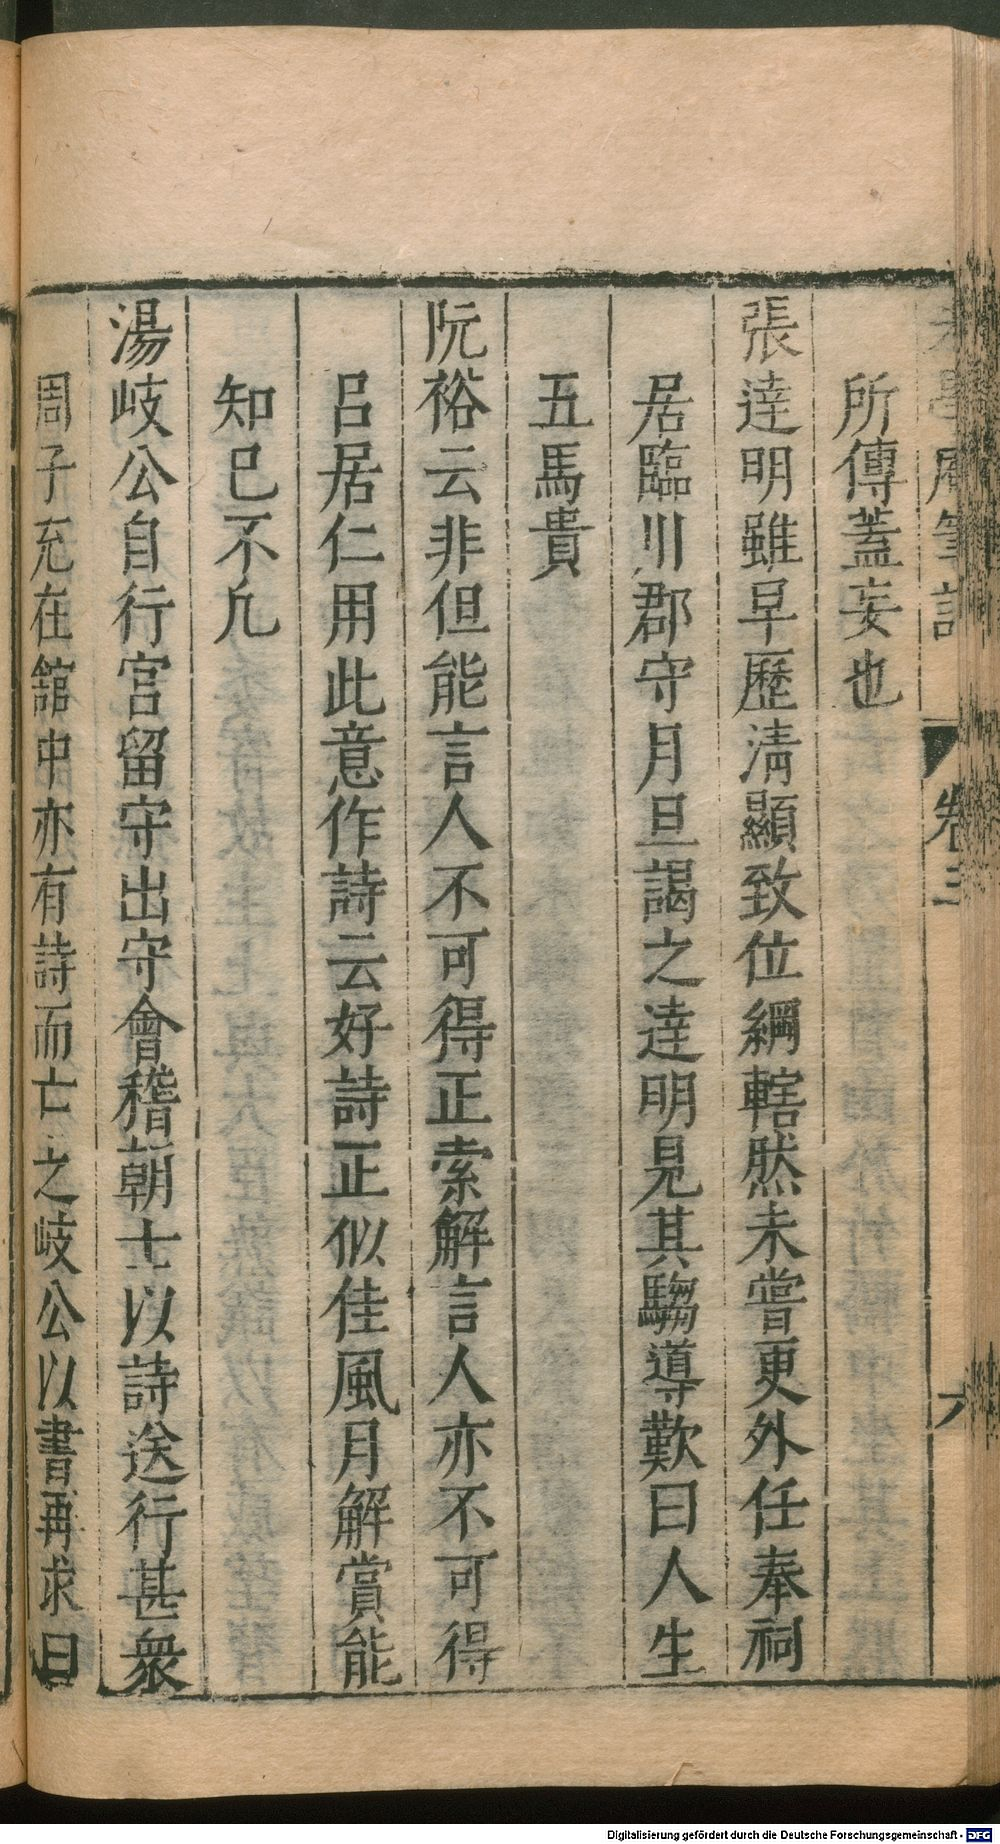 老學庵筆記 卷三 六
所傳蓋妄也
張達明雖早歷清顯致位綱轄然未嘗更外任奉祠
居臨川郡守月旦謁之達明見其騶導歎曰人生
五馬貴
阮裕云非但能言人不可得正索解言人亦不可得
呂居仁用此意作詩云好詩正似佳風月解賞能
知已不凢
湯岐公自行宮留守出守會稽朝士以詩送行甚衆
周子充在舘中亦有詩而亡之岐公以書再求曰
Digitalisierung gefördert durch die Deutsche Forschungsgemeinschaft - DFG